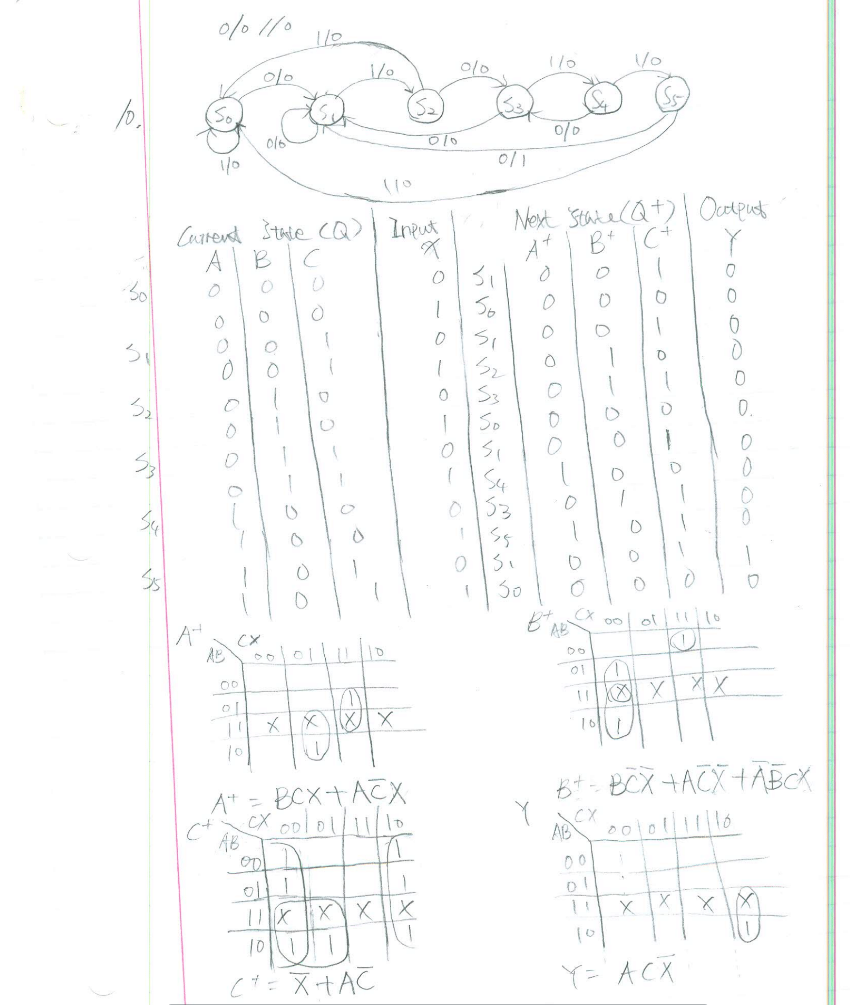 0/0 1/0
1/0
0/0 1/0 0/0 1/0 1/0
10.
S0 S1 S2 S3 S4 S5
1/0 0/0 0/0 0/0
0/1
1/0
Current State (Q) Input Next State (Q+) Output
A B C X A+ B+ C+ Y
S0 0 0 0 0 S1 0 0 1 0
0 0 0 1 S0 0 0 0 0
S1 0 0 1 0 S1 0 0 1 0
0 0 1 1 S2 0 1 0 0
S2 0 1 0 0 S3 0 1 1 0
0 1 0 1 S0 0 0 0 0.
S3 0 1 1 0 S1 0 0 1 0
0 1 1 1 S4 1 0 0 0
S4 1 0 0 0 S3 0 1 1 0
1 0 0 1 S5 1 0 1 0
S5 1 0 1 0 S1 0 0 1 1
1 0 1 1 S0 0 0 0 0
A+ CX B+ CX
AB 00 01 11 10 AB 00 01 11 10
00 00 1
01 1 01 1
11 X X X X 11 X X X X
10 1 10 1
A+ = BCX + AC̅X B+ = BC̅X̅ + AC̅X̅ + A̅B̅CX
C+ CX Y CX
AB 00 01 11 10 AB 00 01 11 10
00 1 1 00
01 1 1 01
11 X X X X 11 X X X X
10 1 1 1 10 1
C+ = X̅ + AC̅ Y = ACX̅